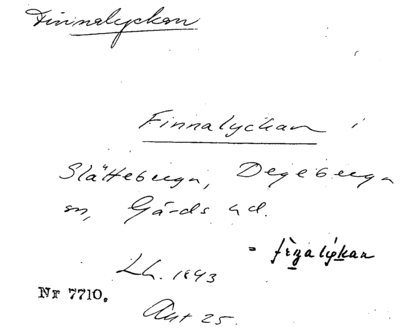 Finnalyckan
Finnalyckan i
Slätteberga, Degeberga
sn, Gärds hd.
= fìnalýkan
Lh. 1843
Nr 7710.
Akt 25.